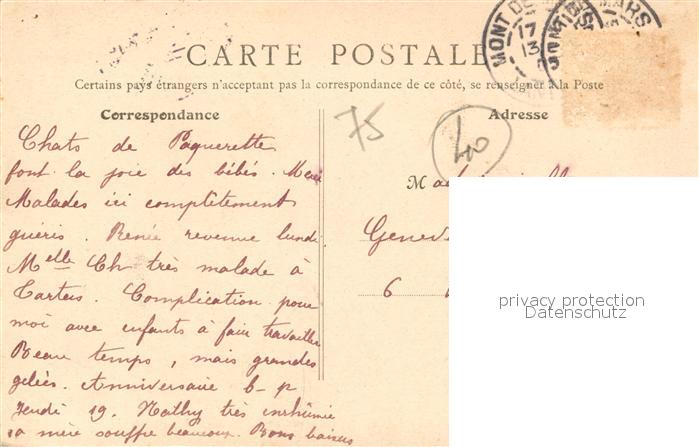 CARTE POSTALE
Certains pays étrangers n'acceptant pas la correspondance de ce côté, se renseigner à la Poste
Correspondance
Chats de Paquerette
font la joie des bébés. Merci
Malades ici complètement
guéris. Renée revenue lundi
Melle Ch très malade à
Tartas. Complication pour
moi avec enfants à faire travailler
Beau temps, mais grandes
gelées. Anniversaire
Jeudi 19. Kathy très enrhumée
sa mère souffre beaucoup. Bons baisers
MONT DE MARSAN
17
13
75
40
Adresse
Mademoiselle
6
privacy protection
Datenschutz